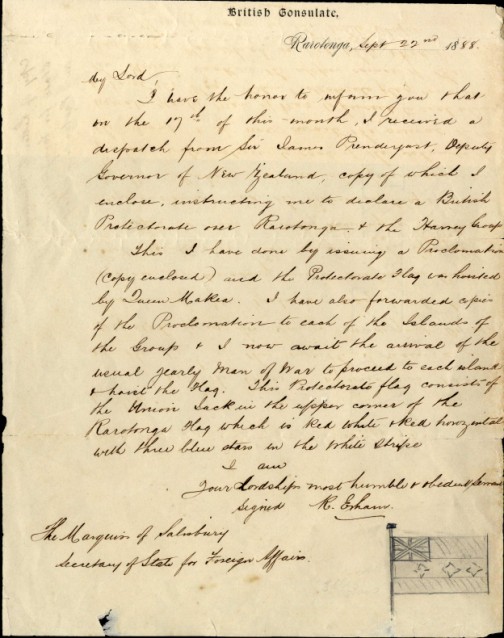 British Consulate,
Rarotonga, Sept 22nd 1888.
My Lord,
I have the honor to inform you that
on the 17th of this month, I received a
dispatch from Sir James Prendergast, Deputy
Governor of New Zealand, copy of which I
enclose, instructing me to declare a British
Protectorate over Rarotonga & the Harvey Group
This I have done by issuing a Proclamation
(copy enclosed) and the Protectorate Flag was hoisted
by Queen Makea. I have also forwarded copies
of the Proclamation to each of the Islands of
the Group & I now await the arrival of the
usual yearly Man of War to proceed to each island
& hoist the Flag. This Protectorate flag consists of
the Union Jack in the upper corner of the
Rarotonga Flag which is Red White & Red horizontal
with three blue stars in the White Stripe
I am
Your Lordships most humble & obedient Servant
Signed R. Exham.
The Marquis of Salisbury
Secretary of State for Foreign Affairs